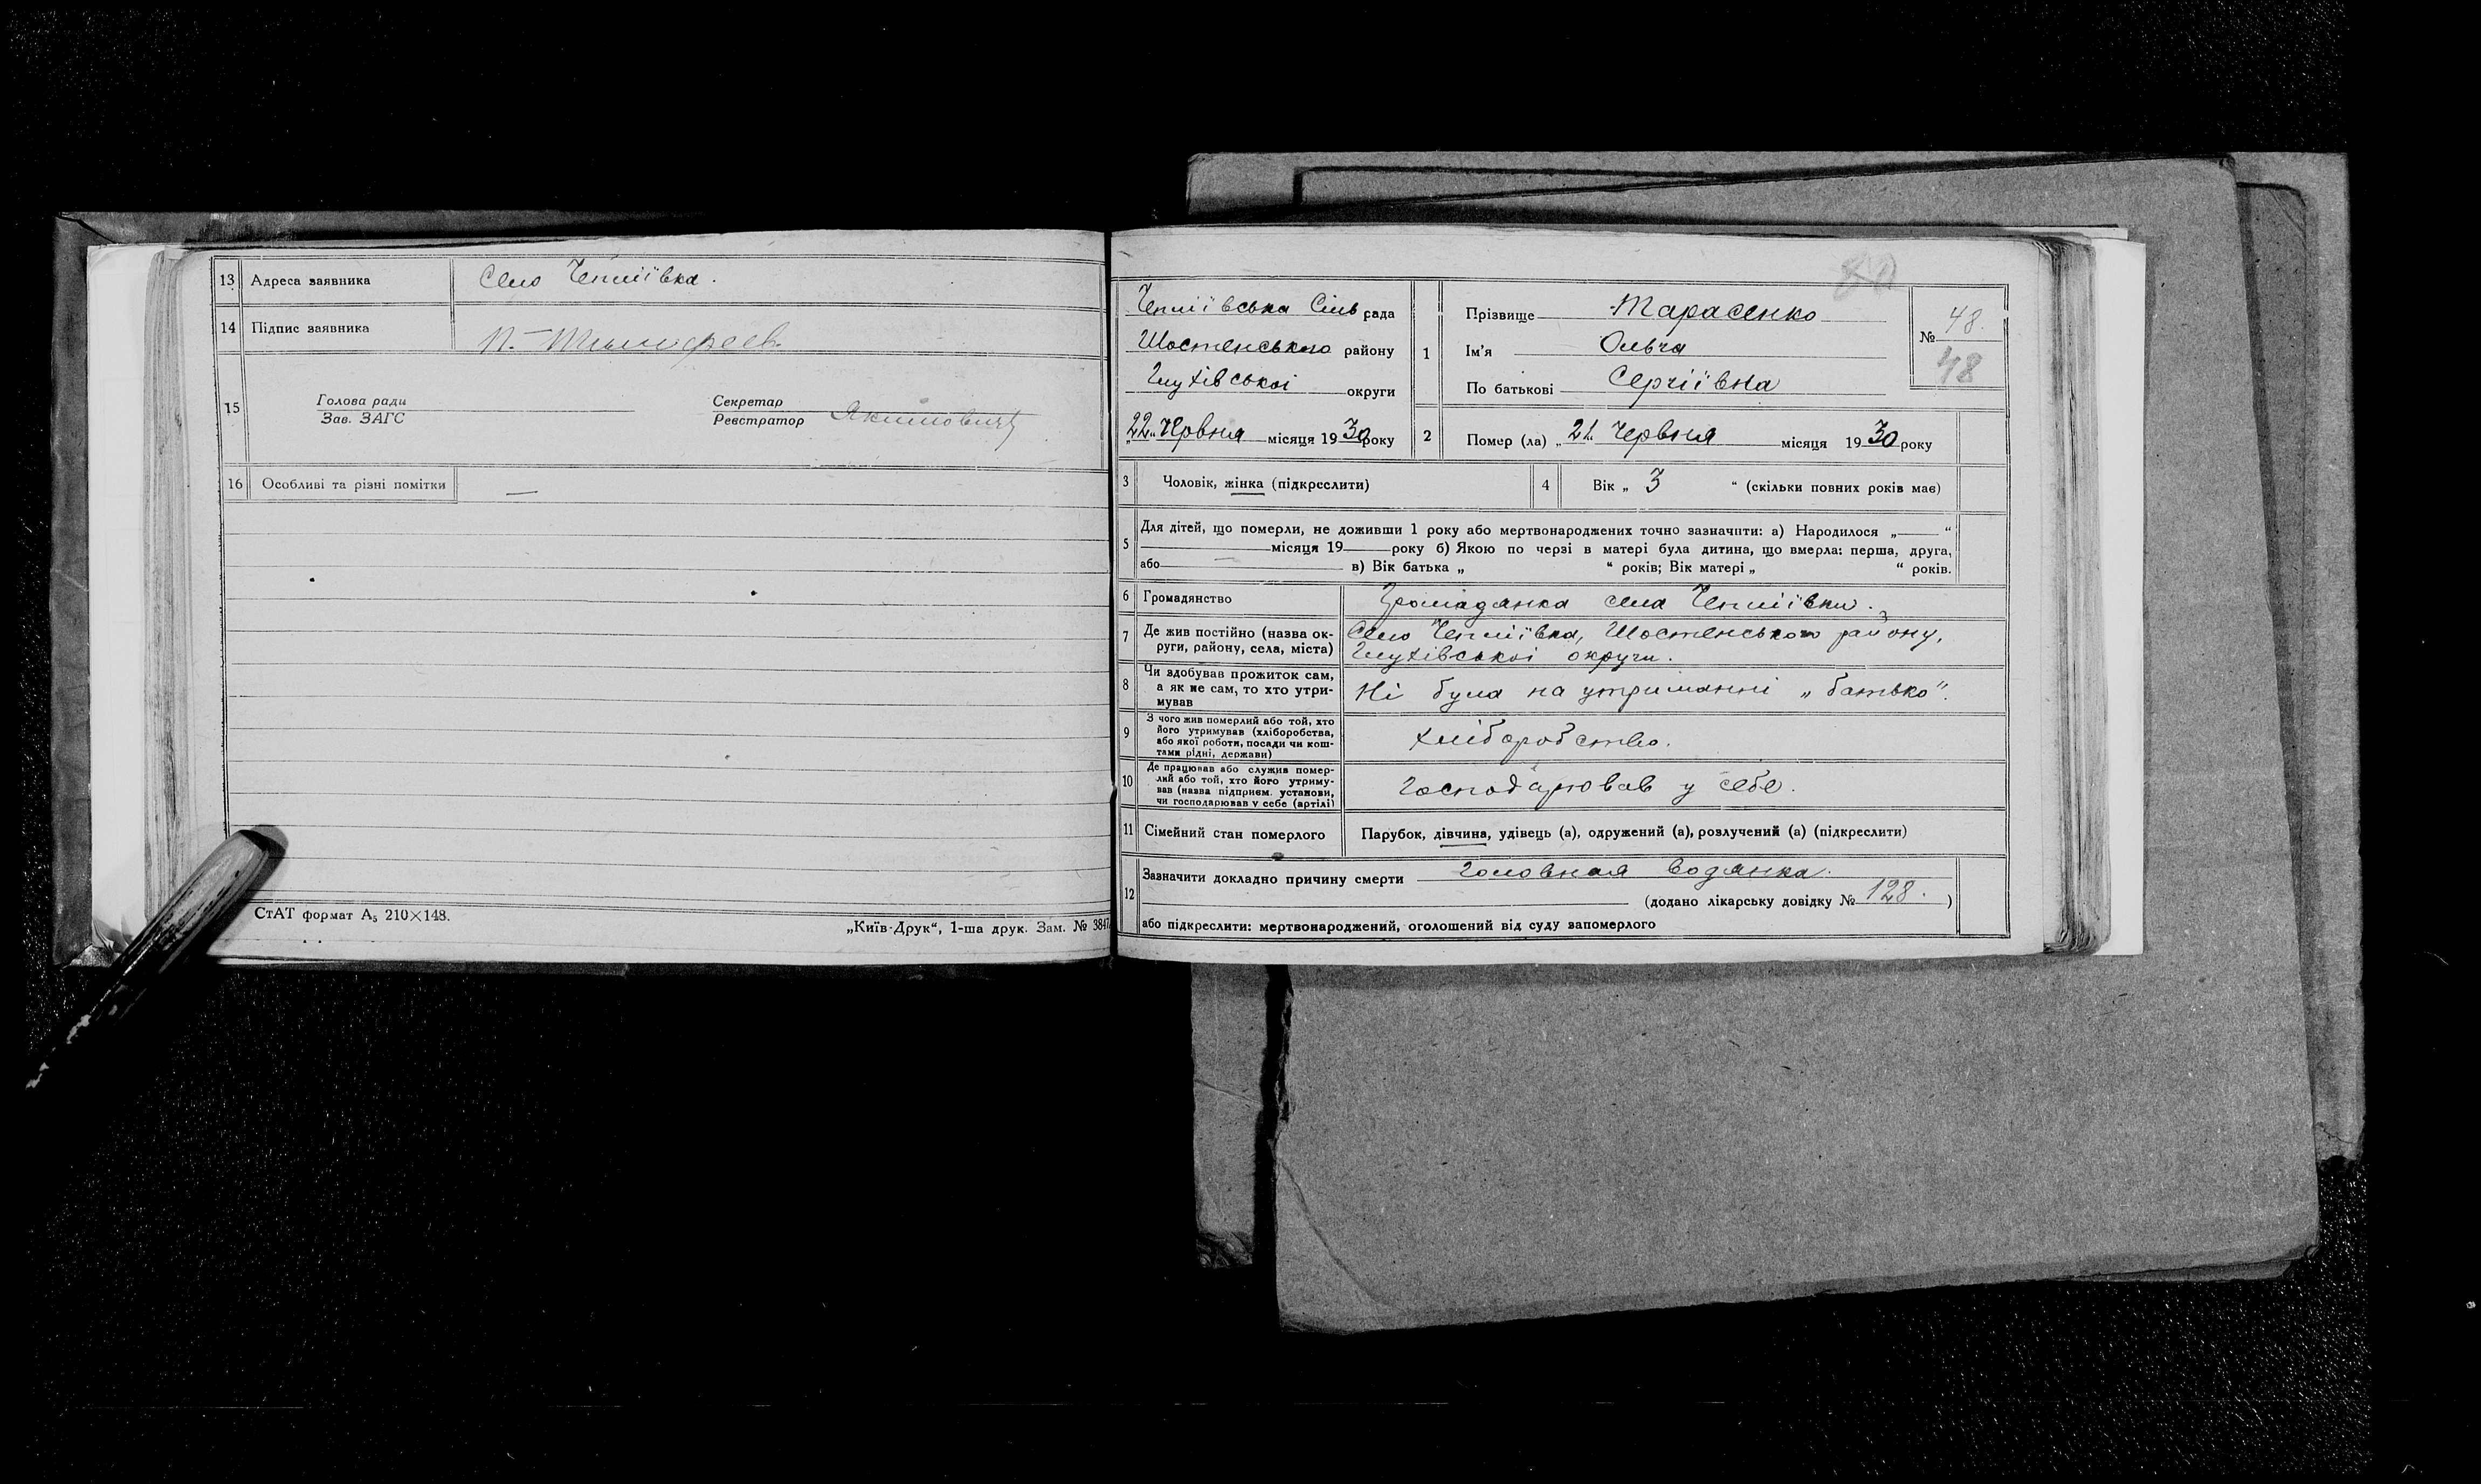 13 Адреса заявника Село Чепліївка.
14 Підпис заявника П. Тимофеев
15 Голова ради Зав. ЗАГС Секретар Реєстратор
16 Особливі та різні помітки —
СтАТ формат А₅ 210×148.
„Київ-Друк“, 1-ша друк. Зам. № 3847
Чепліївська Сільрада
Шостенського району
Глухівської округи
„22„ Червня місяця 1930 року
1 Прізвище Тарасенко
Ім'я Ольга
По батькові Сергіївна
№ 48.
48
2 Помер (ла) „21„ Червня місяця 1930 року
3 Чоловік, жінка (підкреслити)
4 Вік „ 3 “ (скільки повних років має)
5 Для дітей, що померли, не доживши 1 року або мертвонароджених точно зазначити: а) Народилося „ “
місяця 19 року б) Якою по черзі в матері була дитина, що вмерла: перша, друга,
або — в) Вік батька „ “ років; Вік матері „ “ років.
6 Громадянство Громадянка села Чепліївки.
7 Де жив постійно (назва округи, району, села, міста) Село Чепліївка, Шостенського району,
Глухівської округи.
8 Чи здобував прожиток сам,
а як не сам, то хто утримував
Ні була на утриманні „батько“.
9 З чого жив померлий або той, хто
його утримував (хліборобства,
або якої роботи, посади чи коштами рідні, держави)
Хліборобство.
10 Де працював або служив померлий або той, хто його утримував (назва підприєм. установи,
чи господарював у себе (артілі)
Господарював у себе.
11 Сімейний стан померлого Парубок, дівчина, удівець (а), одружений (а), розлучений (а) (підкреслити)
12 Зазначити докладно причину смерти Головная водянка.
(додано лікарську довідку № 128. )
або підкреслити: мертвонароджений, оголошений від суду запомерлого